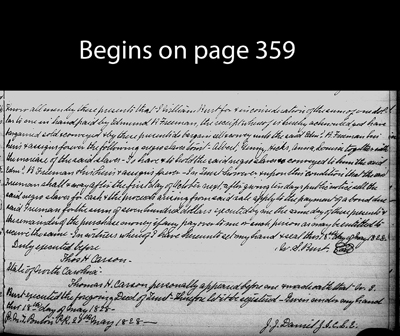 Begins on page 359
Know all men by these presents that I William Hurt for & in consideration of the sum of one dol
lar to me in hand paid by Edmund B. Freeman, the receipt whereof is hereby acknowledged have
bargained sold & conveyed & by these presents do bargain sell & convey unto the said Edm. B. Freeman his
heirs & assigns forever the following negro slaves to wit: Albert, Jenny, together with
the increase of the said slaves To have & to hold the said negro slaves so conveyed to him the said
Edm. B. Freeman & his heirs & assigns forever In Trust however & upon this condition that the said
Freeman shall & may after the first day of October next, after giving ten days public notice sell the
said negro slaves for cash & the proceeds arising from said sale apply to the payment of a bond due
said Freeman for the sum of seven hundred dollars executed on the same day of these presents &
the remainder of the purchase money if any pay over to me or such person as may be entitled to
receive the same In witness whereof I have hereunto set my hand & seal this 18th day of May 1828
Duly executed before
Thos H Carson
State of North Carolina
Thomas H. Carson personally appeared before me & made oath that Wm S.
Hurt executed the foregoing Deed of Trust Therefore let it be registered Given under my hand
this 18th day of May 1828
24th May 1828
J. J. Daniel J.S.C.L.E.